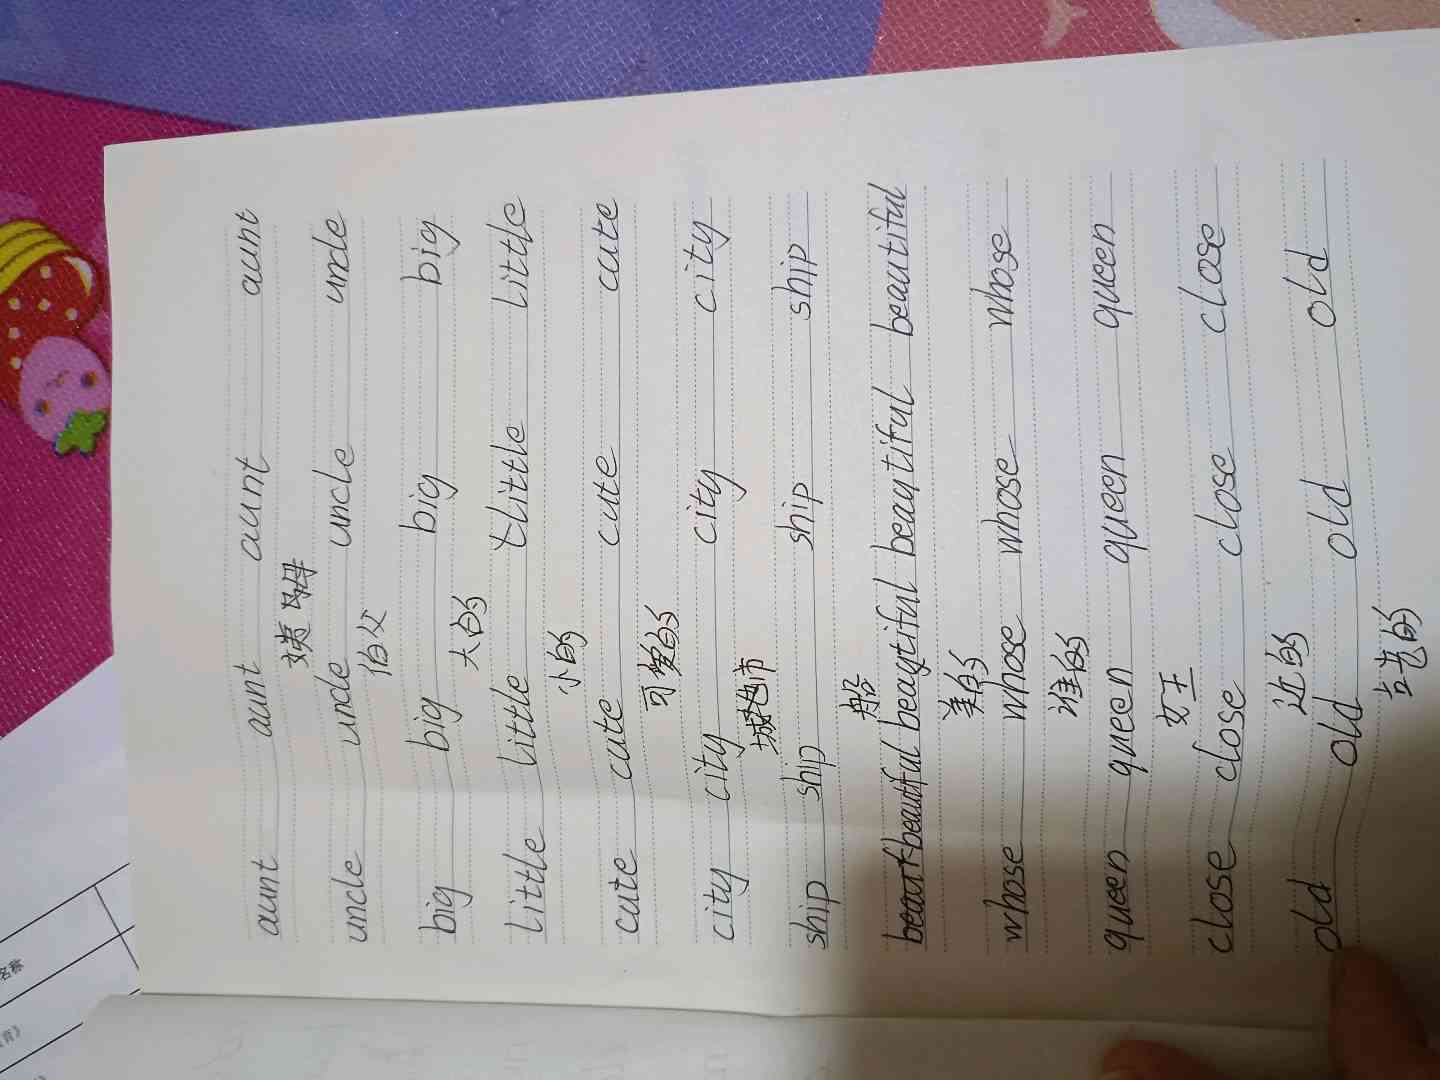 aunt aunt aunt aunt
uncle uncle uncle uncle
伯父
big big big big
大的
little little tlittle little
小的
cute cute cute cute
可爱的
city city city city
城市
ship ship ship ship
船
beautiful beautiful beautiful beautiful
美的
whose whose whose whose
谁的
queen queen queen queen
女王
close close close close
近的
old old old old
名称
育》